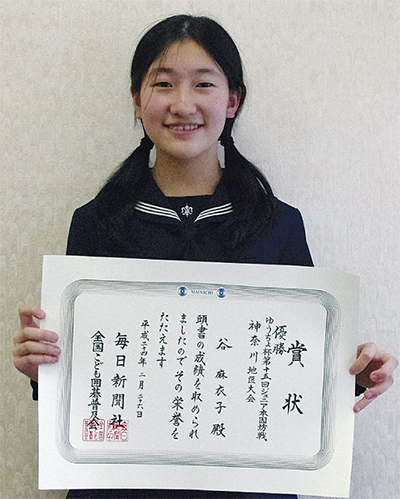 MAINICHI
賞状
優勝
ゆうちょ杯第十五回ジュニア本因坊戦
神奈川地区大会
谷 麻衣子 殿
頭書の成績を収められ
ましたのでその栄誉を
たたえます
平成二十四年 二月 二十六日
毎日新聞社
全国こども囲碁普及会